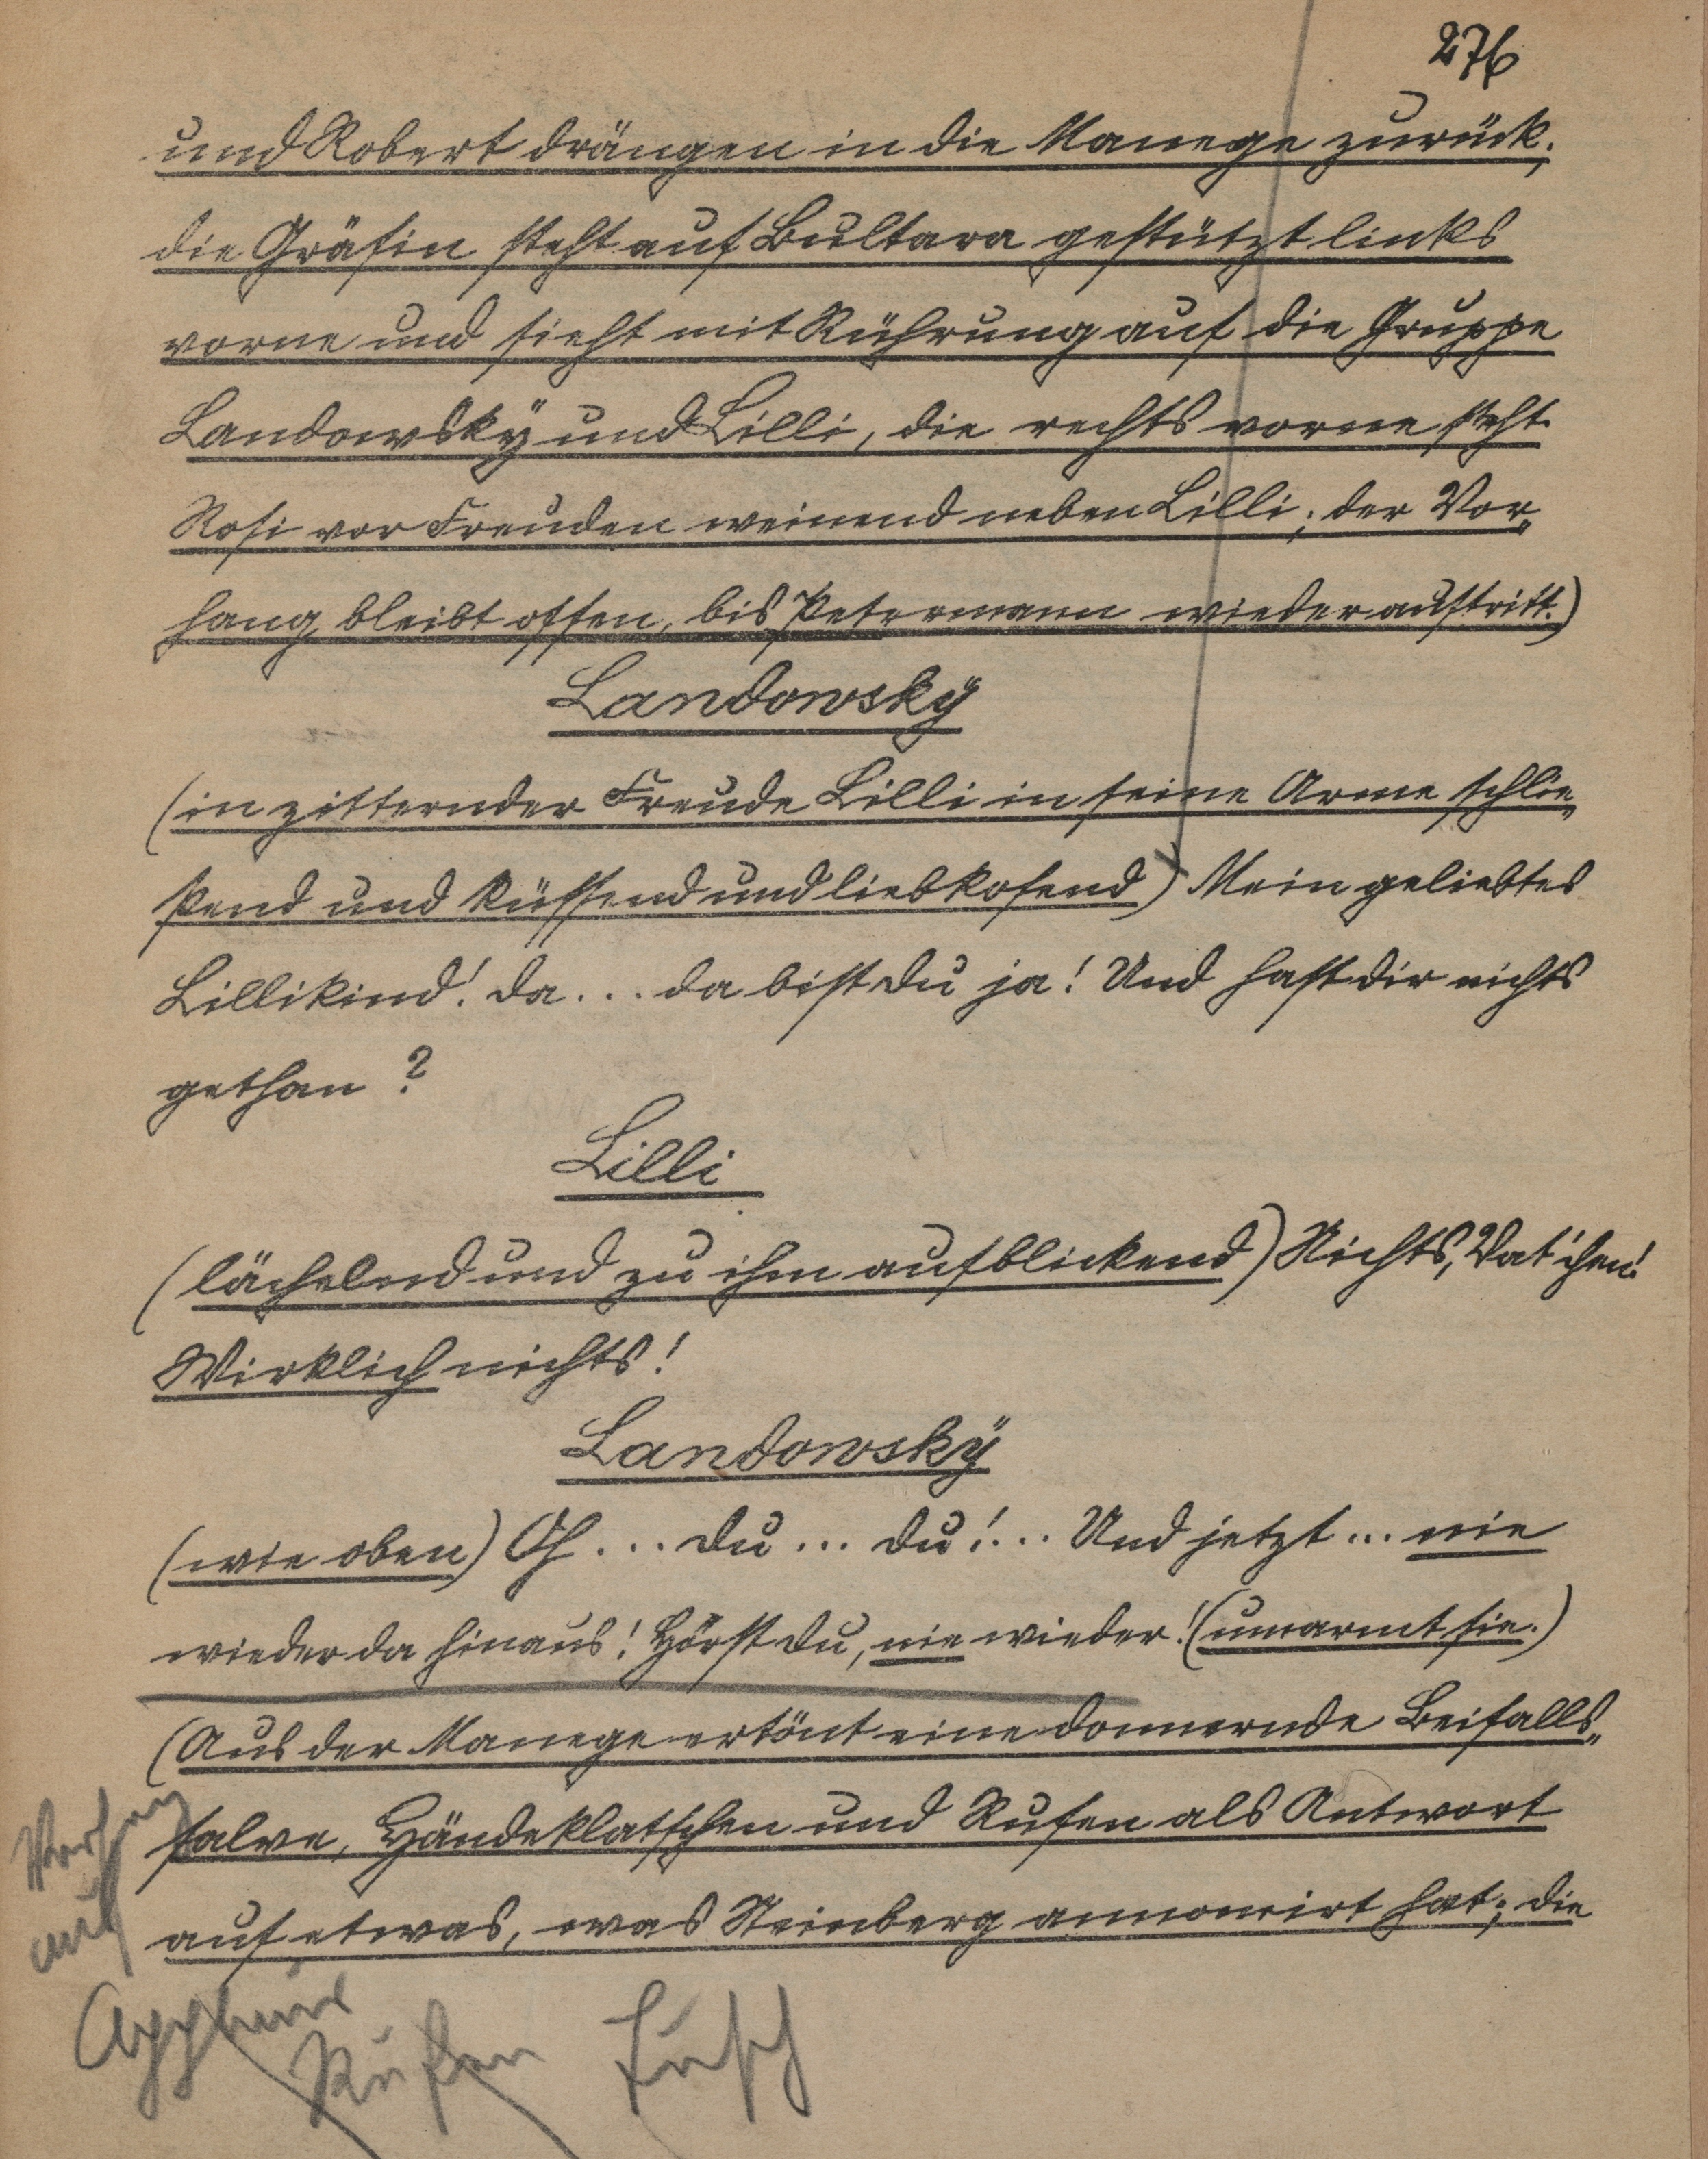 276
und Robert drängen in die Manege zurück.
die Gräfin steht auf Bultara gestützt links
vorne und sieht mit Rührung auf die Gruppe
Landowskÿ und Lilli, die rechts vorne steht.
Rosi vor Freuden weinend neben Lilli; der Vor„
hang bleibt offen, bis Petermann wieder auftritt.)
Landowskÿ
(in zitternder Freude Lilli in seine Arme schlie„
ßend und küssend und liebkosend) Mein geliebtes
Lillikind! da... da bist du ja! Und hast dir nichts
gethan?
Lilli
(lächelnd und zu ihm aufblickend) Nichts, Vat'chen!
Wirklich nichts!
Landowskÿ
(wie oben) Oh... du... du!... Und jetzt... nie
wieder da hinaus! Hörst du, nie wieder! (umarmt sie.)
(Aus der Manege ertönt eine donnernde Beifalls„
salve, Händeklatschen und Rufen als Antwort
auf etwas, was Steinberg annoncirt hat; die
Vorhang
auf
Applaus
Rufen